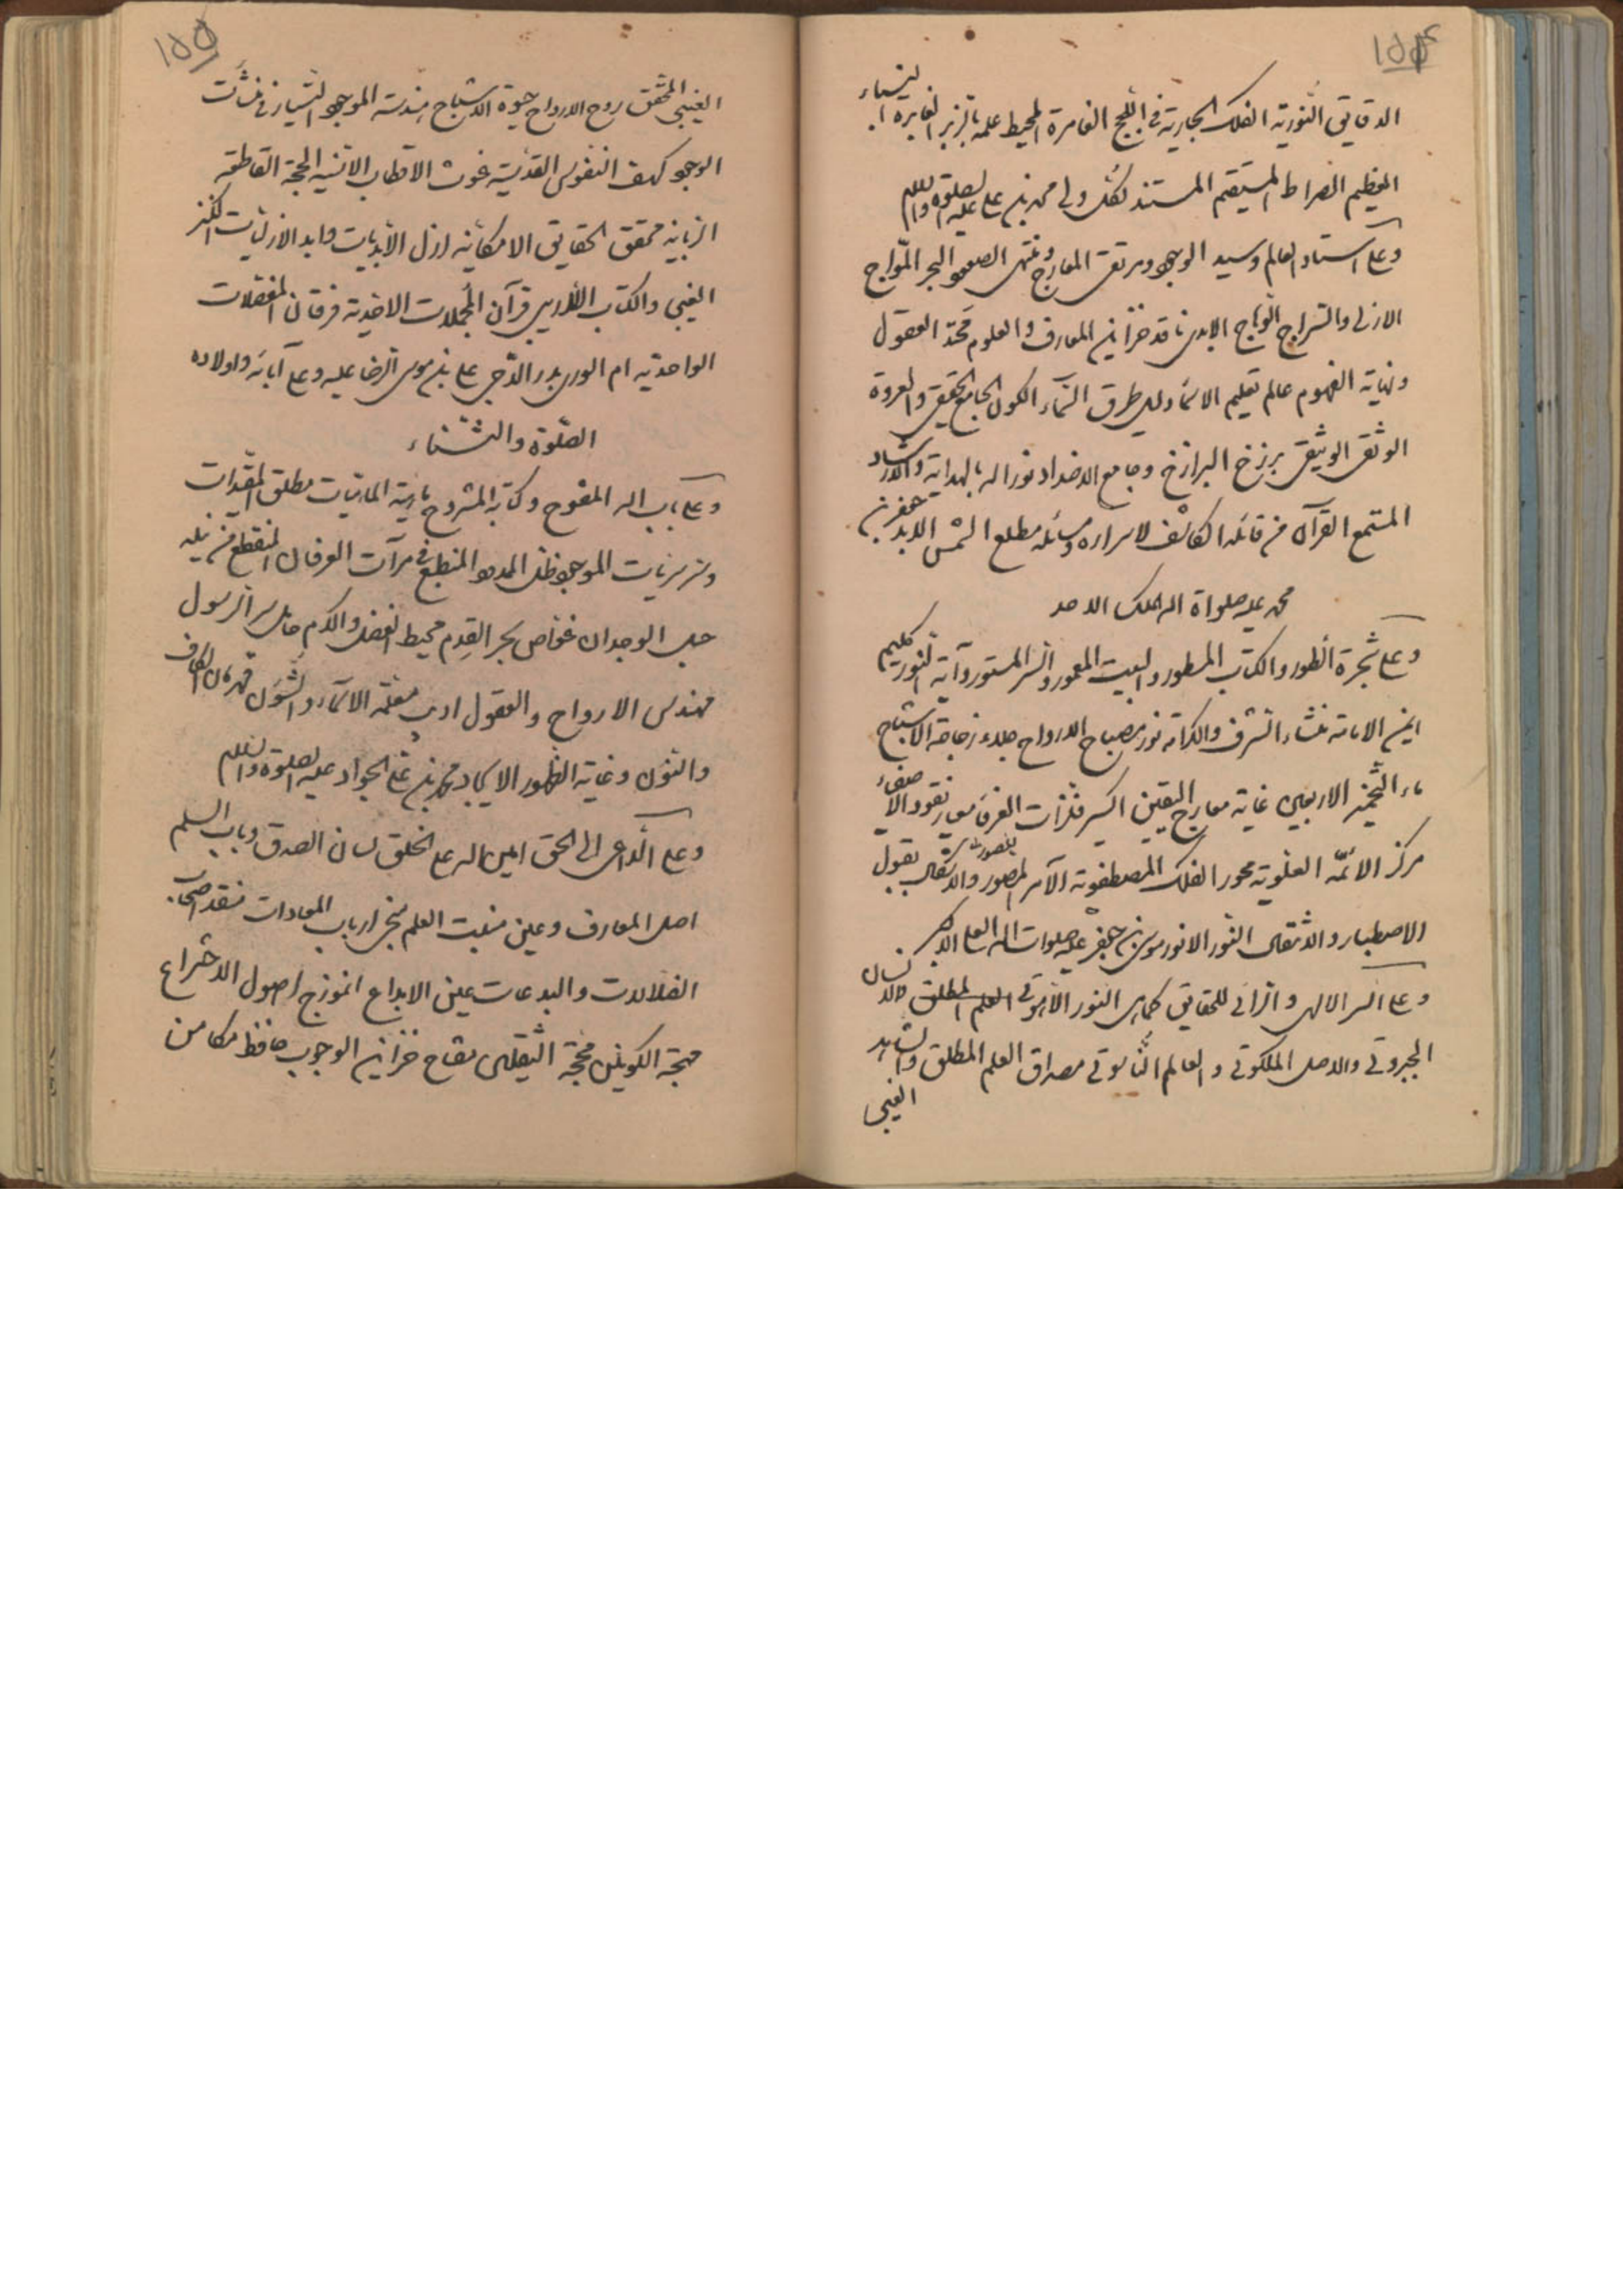 ١٥٤
الدقايق النورية الفلك الجارية في اللجج الغامرة المحيط علمه بالزبر الغابرة النباء
العظيم الصراط المستقيم المستند لكل ولى محمد بن على عليه الصلوة والسلام
وعلى استاد العالم وسيد الوجود ومرتقى المعارج ومنتهى الصعود البحر المواج
الازلى والسراج الوهاج الابدى ناقد خزاين المعارف والعلوم محتد العقول
ونهاية الفهوم عالم تعليم الاسماء دليل طرق السماء الكون الجامع الحقيقى والعروة
الوثقى الوثيقى برزخ البرازخ وجامع الاضداد نور اله بالهداية والارشاد
المستمع القرآن من قائله الكاشف لاسراره ومسائله مطلع الشمس الابد جعفر بن
محمد عليه صلواة اله الملك الاحد
وعلى شجرة الطور والكتاب المسطور والبيت المعمور والسر المستور وآية النور كليم
ايمن الامامة منشاء الشرف والكرامة نور مصباح الارواح جلاء زجاجة الاشباح
ماء التخمير الاربعينى غاية معارج اليقين اكسير فلزات العرفاء معيار نقود الاصفياء
مركز الائمه العلوية محور الفلك المصطفوية الآمر للصور والاشكال بقبول
الاصطبار والانتقال النور الانور موسى بن جعفر عليه صلوات اله العلى الاكبر
وعلى السر الالهى والرائى للحقايق كماهى النور اللاهوتى العلم المطلق والانسان
الجبروتى والاصل الملكوتى والعالم الناسوتى مصداق العلم المطلق والشاهد
الغيبى
١٥٥
الغيبى المحقق روح الارواح حيوة الاشباح هندسة الموجود السيار في نشآت
الوجود كهف النفوس القدسية غوث الاقطاب الانسيه الحجة القاطعة
الربانية محقق الحقايق الامكانيه ازل الأبديات وابد الازليات الكنز
الغيبى والكتاب اللاريبى قرآن المجملات الاحدية فرقان المفصلات
الواحدية ام الورى بدر الدجى على بن موسى الرضا عليه وعلى آبائه واولاده
الصلوة والثناء
وعلى باب اله المفتوح وكتابه المشروح ماهية الماهيات مطلق المقيدات
وسر سريات الموجود ظل الممدود المنطبع في مرآت العرفان المنقطع من نيله
حبل الوجدان غواص بحر القدم محيط الفضل والكرم حامل سر الرسول
مهندس الارواح والعقول اديب معلمة الاسماء والشئون قهرمان الكاف
والنون وغاية الظهور الايجاد محمد بن على الجواد عليه الصلوة والسلم
وعلى الداعى الى الحق امين اله على الخلق لسان الصدق وباب السلم
اصل المعارف وعين منبت العلم منجى ارباب المعادات منقذ اصحاب
الضلالات والبدعات عين الابداع انموزج اصول الاختراع
مهجة الكونين محجة الثقلين مفتاح خزاين الوجوب حافظ مكامن